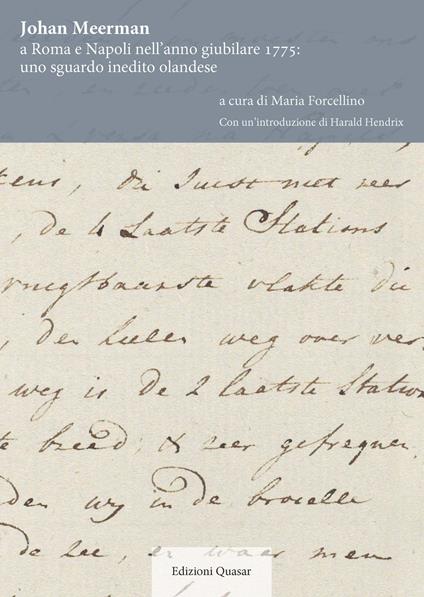 Johan Meerman
a Roma e Napoli nell'anno giubilare 1775:
uno sguardo inedito olandese
a cura di Maria Forcellino
Con un'introduzione di Harald Hendrix
die juist niet zeer
, de 4 Laatste Stations
vrugtbaarste vlakte die
, den heelen weg over ver
weg is de 2 laatste Station
te breed, & zeer gefrequen
den wy in de broelle
de zee, er waar men
Edizioni Quasar